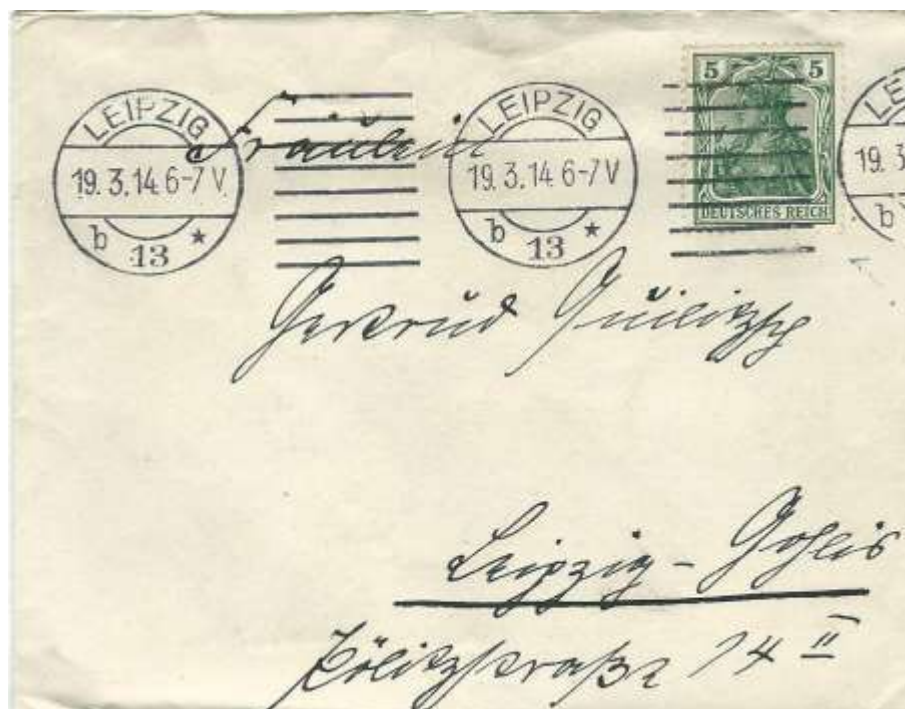 LEIPZIG
19.3.14 6-7 V.
b 13 *
LEIPZIG
19.3.14 6-7 V
b 13 *
5 5
DEUTSCHES REICH
LE
19. 3
b
Fräulein
Gertrud Quilitzsch
Leipzig-Gohlis
Pölitzstraße 14 II